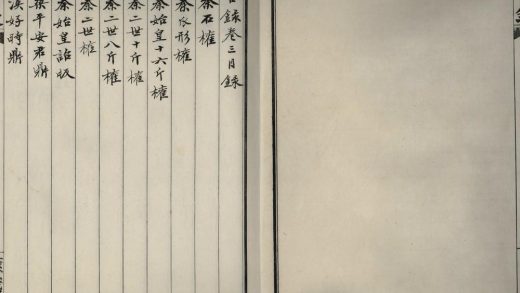 目錄卷三目錄
秦石權
秦瓜形權
秦始皇十六斤權
秦二世十斤權
秦二世八斤權
秦二世權
秦始皇詔版
梁平安君鼎
漢好時鼎